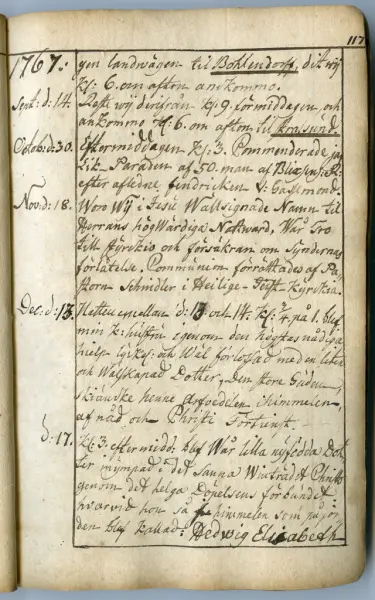 117
1767: gen landwägen til Bohlendorff, dit wij
kl: 6. om afton ankommo.
Sept: d: 14. Reste wij derifrån kl: 9. förmiddagen och
ankommo kl: 6. om afton til Stralsund.
Octob: d: 30. Eftermiddagen kl: 3. Commenderade jag
Lik Paraden af 50. man af Blixens
efter afledne fendricken
Nov: d: 18. Woro Wij i Jesu Wälsignade Namn til
Herrans högWärdiga Nattward, Wår Tro
till styrckio och försäkran om Syndernas
förlåtelse, Communion förrättades af Pa-
storn Schindler i Heilige-Geist Kyrckia.
Dec: d: 13. Natten emellan d: 13 och 14. kl: 3/4 på 1. blef
min k: hustru igenom den högstes nådiga
hielp lyckl: och Wäl förlossad med en liten
och Wälskapad Dotter, Den store Guden
skiäncke henne arfvedelen i himmelen,
af nåd och Christi förtienst.
d: 17. kl: 3. eftermidd: blef Wår lilla nyfödda Dot-
ter inympad i det sanna Winträdt Christo
genom det helga Döpelsens förbundet
hvarvid hon så i himmelen som på jor-
den blef kallad: Hedwig Elisabeth